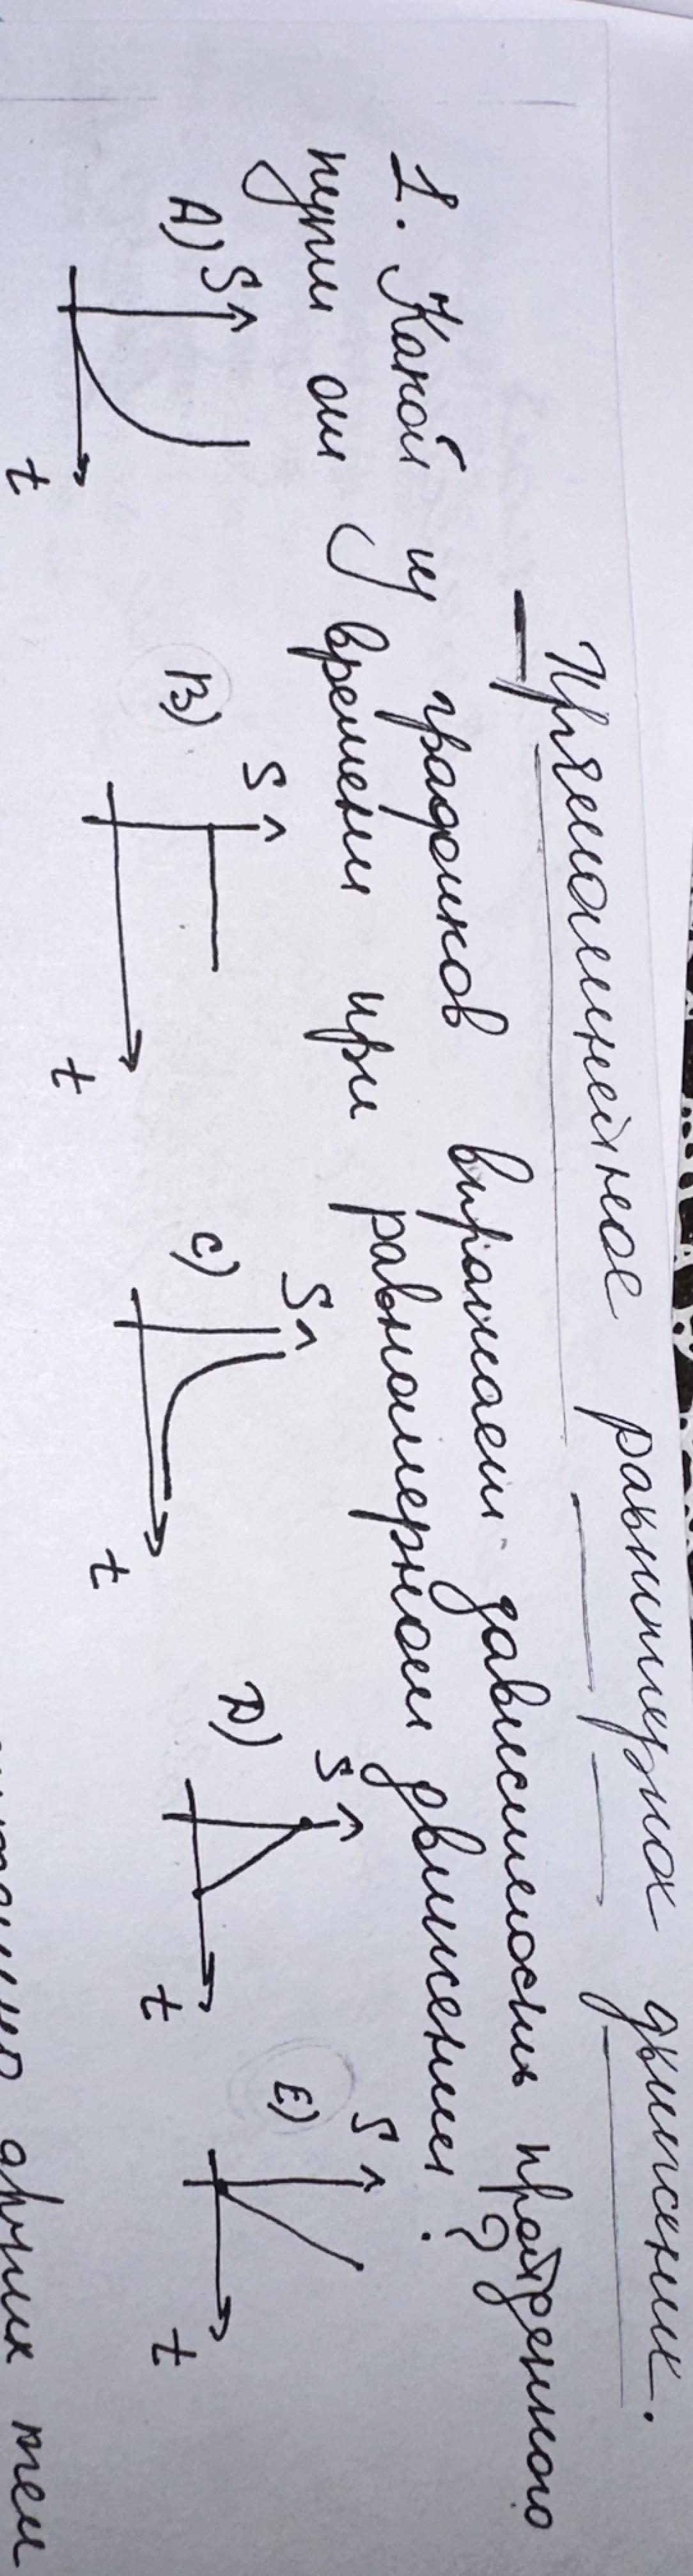 Прямолинейное равномерное движение.
1. Какой из графиков выражает зависимость пройденного
пути от времени при равномерном движении?
A) S t B) S t C) S t D) S t E) S t
других тел